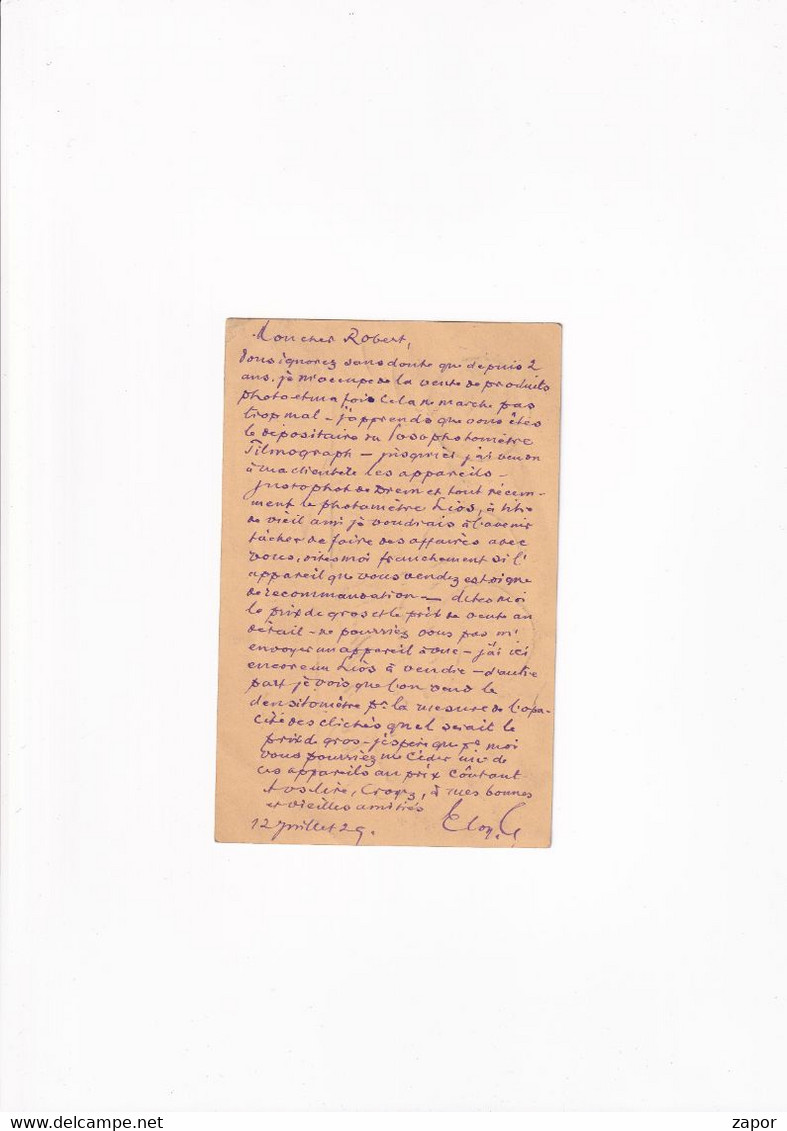 Mon cher Robert,
Vous ignorez sans doute que depuis 2
ans, je m'occupe de la vente de produits
photo et ma fois cela ne marche pas
trop mal – j'apprends que vous êtes
le dépositaire du photomètre
Filmograph – jusqu'ici j'ai vendu
à ma clientèle les appareils –
Justophot de Drem et tout récem-
ment le photomètre Liòs, à titre
de vieil ami je voudrais à l'avenir
tâcher de faire des affaires avec
vous, dites moi franchement si l'
appareil que vous vendez est digne
de recommandation – dites moi
le prix de gros et le prix de vente au
détail – ne pourriez vous pas m'
envoyer un appareil à vue – j'ai ici
encore un Liòs à vendre – d'autre
part je vois que l'on vend le
densitomètre pr la mesure de l'opa-
cité des clichés quel serait le
prix de gros – j'espère que pr moi
vous pourriez me céder un de
ces appareils au prix coûtant
A vs lire, Croyez, à mes bonnes
et vieilles amitiés
12 Juillet 29.
delcampe.net
zapor